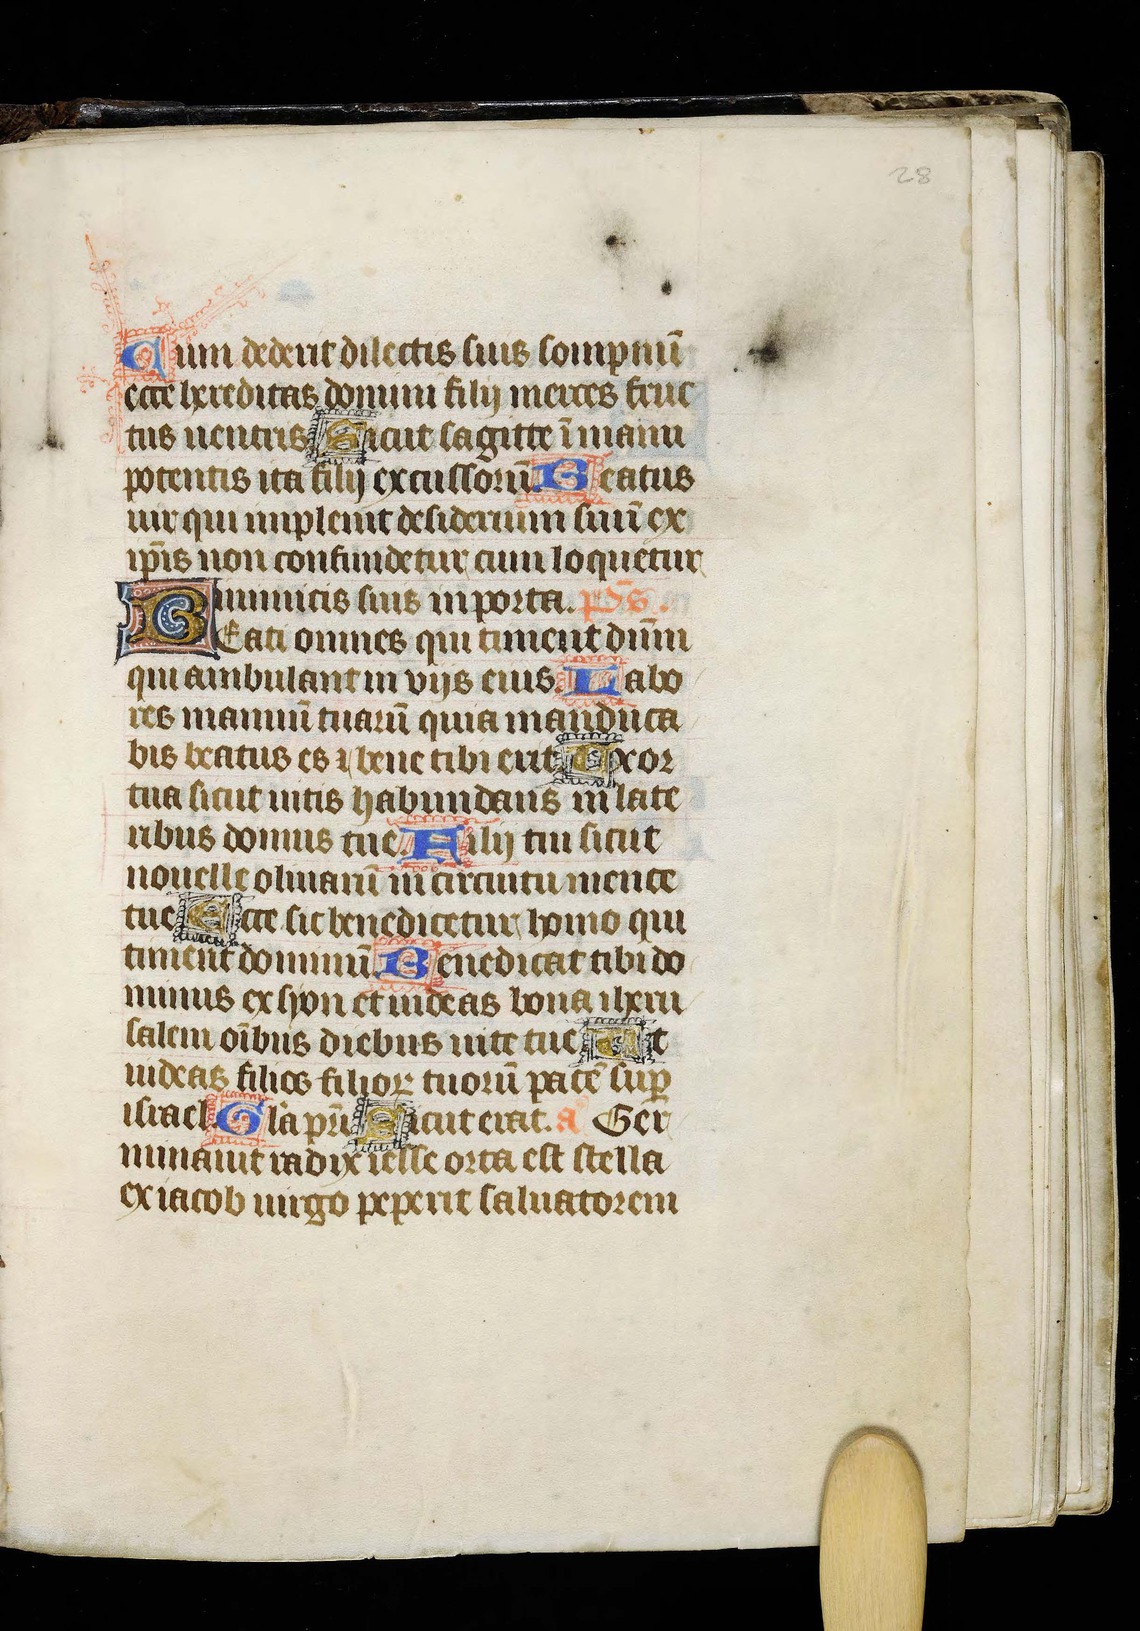 28
Cum dederit dilectis suis sompnũ
ecce hereditas domini filij merces fruc
tus uentris Sicut sagitte ĩ manu
potentis ita filij excussorũ Beatus
uir qui impleuit desiderium suũ ex
ip̃is non confundetur cum loquetur
inimicis suis in porta. p̃s.
BEati omnes qui timent dñm
qui ambulant in vijs eius. Labo
res manuũ tuarũ quia manduca
bis beatus es ⁊ bene tibi erit Uxor
tua sicut uitis habundans in late
ribus domus tue. Filij tui sicut
nouelle oliuarũ in circuitu mence
tue Ecce sic benedicetur homo qui
timent dominũ. Benedicat tibi do
minus ex syon et uideas bona iheru
salem oĩbus diebus uite tue Et
uideas filios filioꝝ tuorũ pacẽ suꝑ
israel. Gl̃a pr̃i Sicut erat. a Ger
minauit radix iesse orta est stella
ex iacob uirgo peperit saluatorem